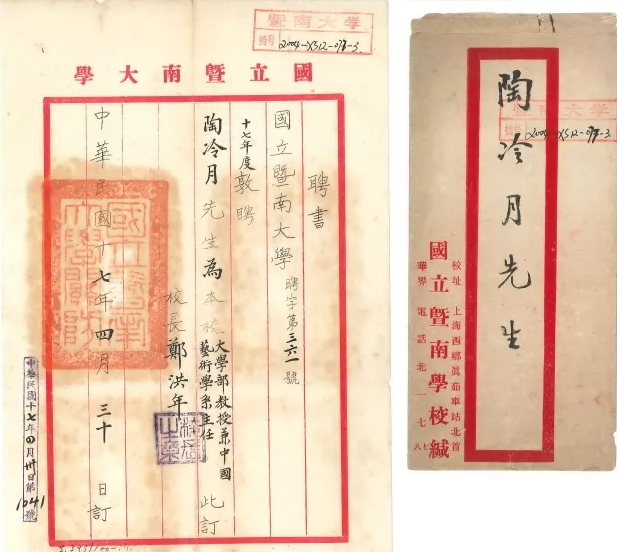 暨南大学
國立暨南大學
聘書
國立暨南大學 聘字第三六一號
十七年度敦聘
陶冷月先生為本校大學部教授兼中國
藝術學系主任 此訂
校長鄭洪年
中華民國十七年四月三十日訂
中華民國十七年四月卅日第1041號
國立暨南大學關防
暨南大学
陶冷月先生
校址 上海西鄉眞茹車站北首
國立暨南學校緘
華界 電話北一七